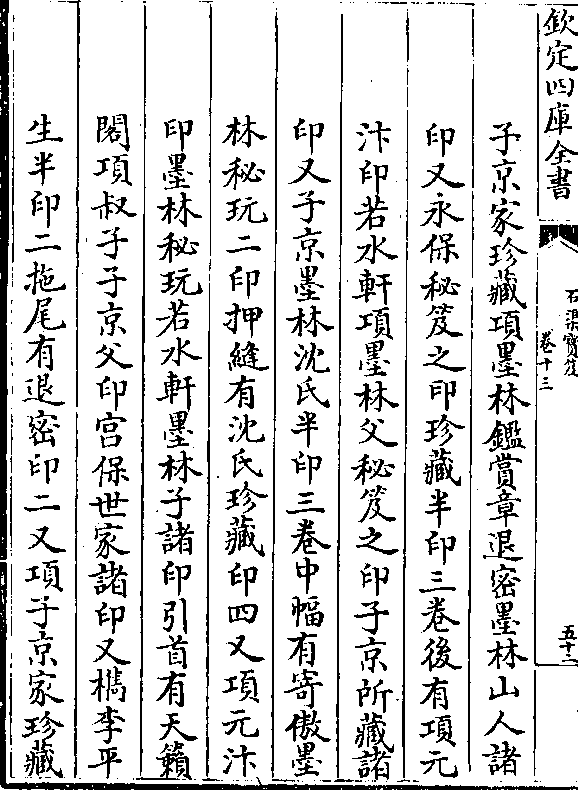 欽定四庫全書
石渠寳笈
卷十三
五十二
子京家珍藏項墨林鑑賞章退密墨林山人諸
印又永保秘笈之印珍藏半印三卷後有項元
汴印若水軒項墨林父秘笈之印子京所藏諸
印又子京墨林沈氏半印三卷中幅有寄傲墨
林秘玩二印押縫有沈氏珍藏印四又項元汴
印墨林秘玩若水軒墨林子諸印引首有天籟
閣項叔子子京父印宫保世家諸印又檇李平
生半印二拖尾有退密印二又項子京家珍藏